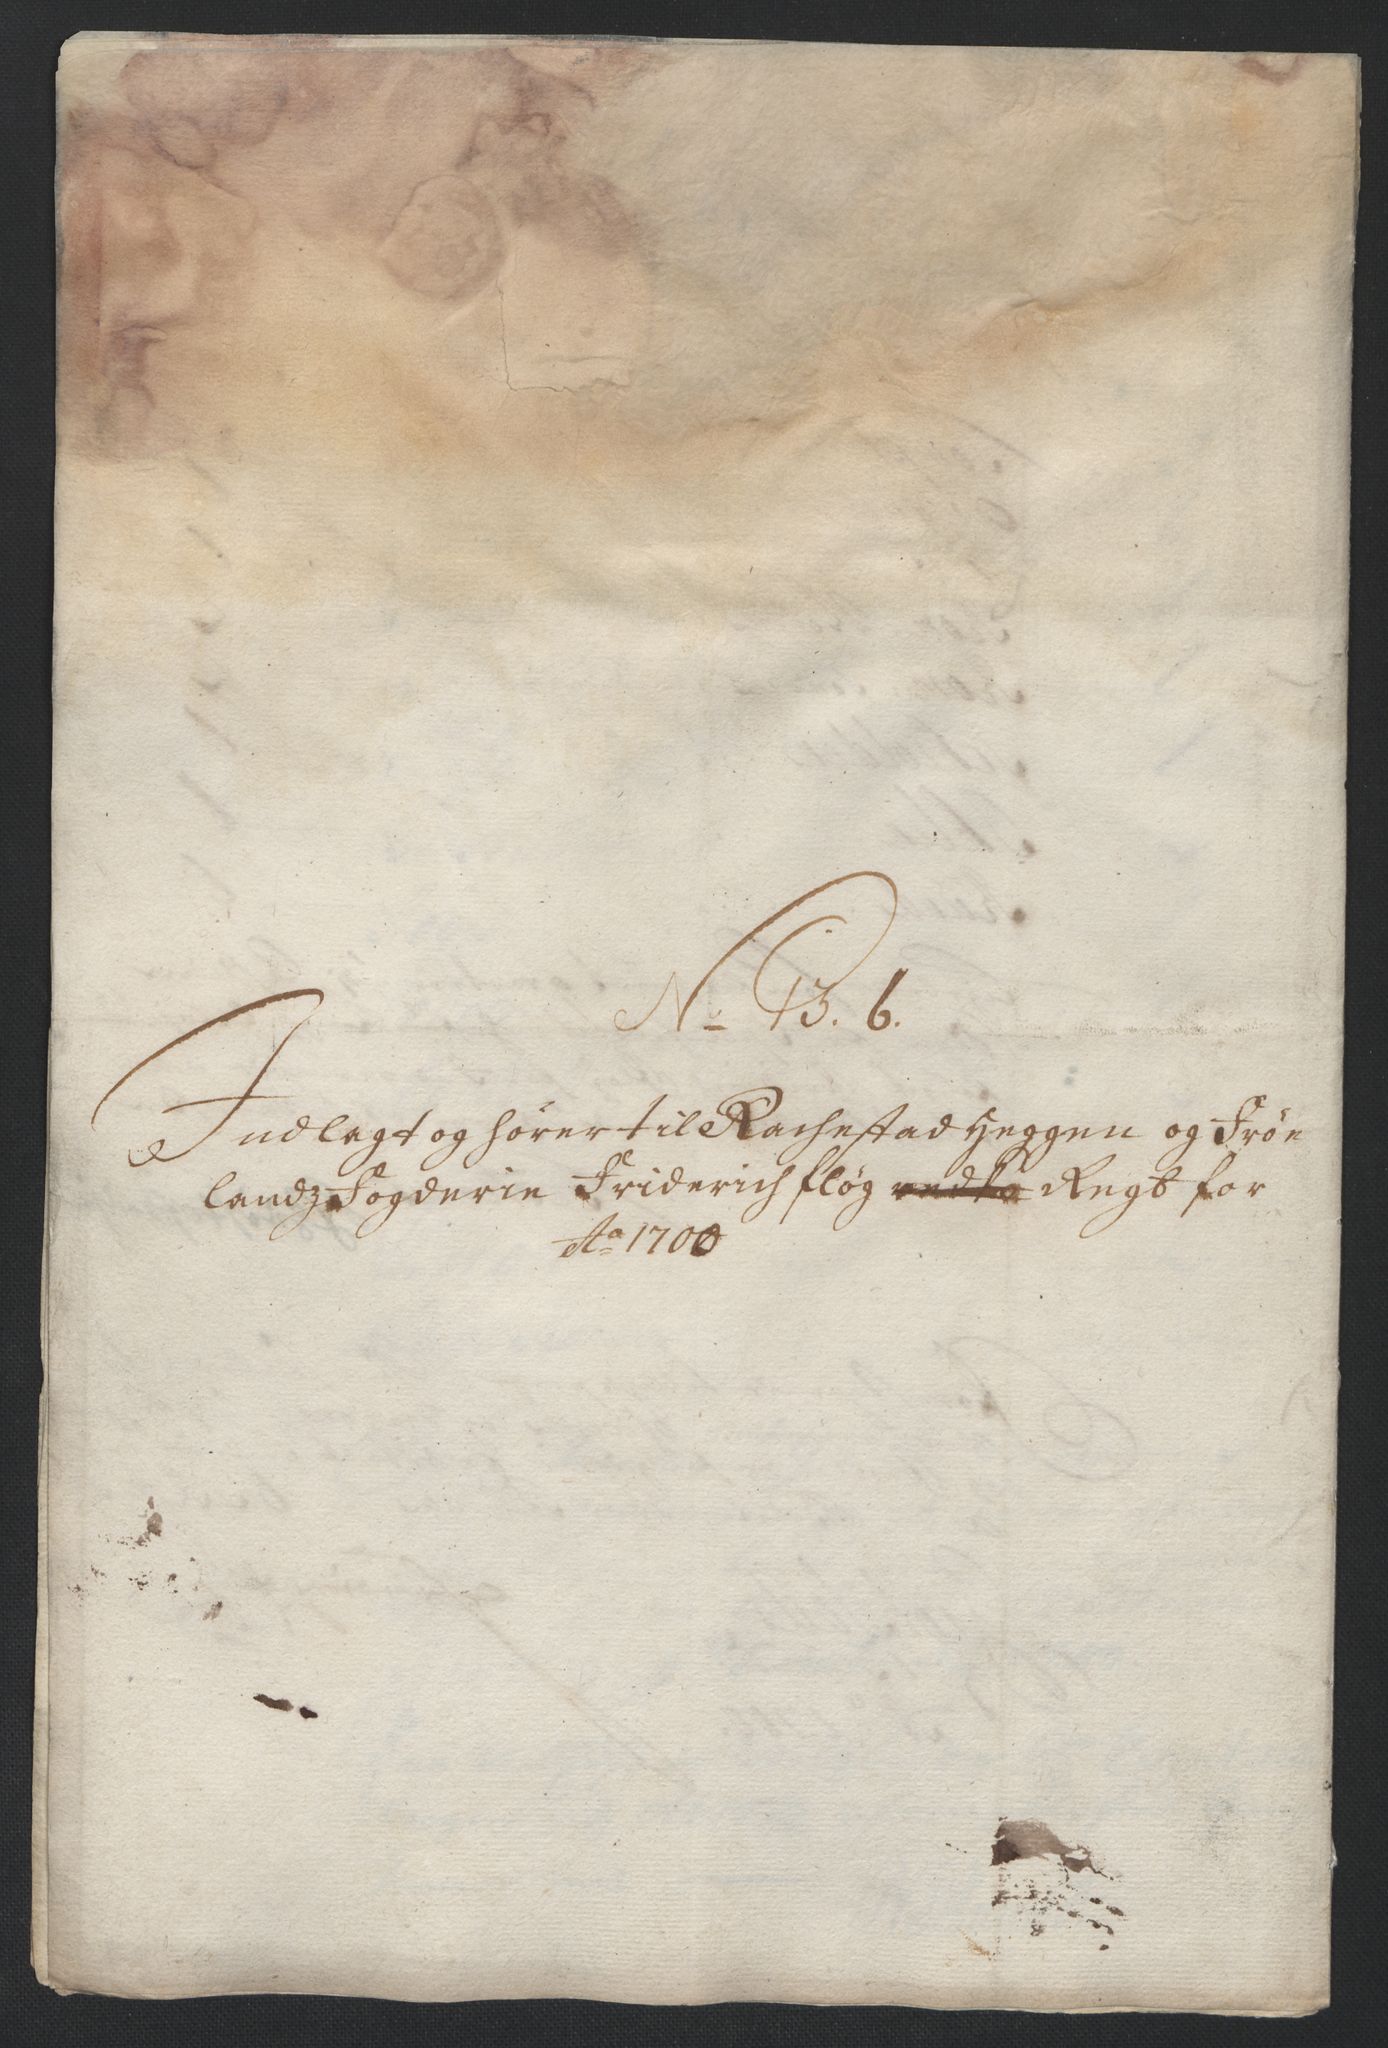 No 13. 6.
Indlagt og hører til Rachestad Heggen og Frøe
landz Fogderie Friderich fløg Regb for
Ao 1700